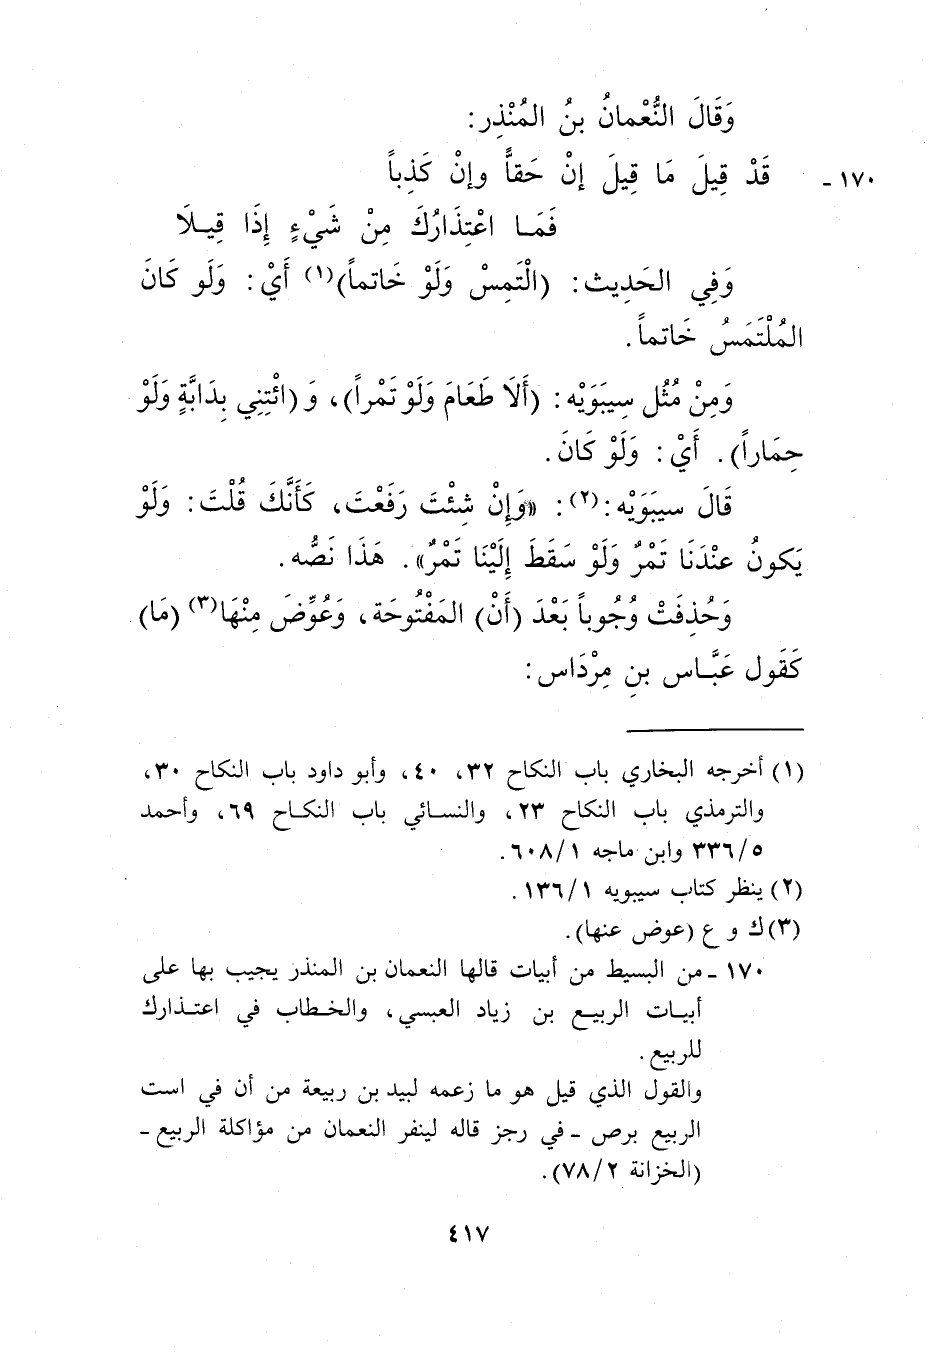 وَقَالَ النُّعْمانُ بنُ المُنْذِرِ:
١٧٠ - قَدْ قِيلَ مَا قِيلَ إنْ حَقاًّ وإنْ كَذِباً
فَمَـا اعْتِذَارُكَ مِنْ شَيْءٍ إِذَا قِيـلَا
وَفِي الحَدِيث: (الْتَمِسْ وَلَوْ خَاتماً)(١) أَيْ: وَلَو كَانَ
المُلْتَمَسُ خَاتماً.
وَمِنْ مُثُلِ سِيبَوَيْه: (أَلَا طَعَامَ وَلَوْ تَمْراً)، وَ (ائْتِنِي بِدَابَّةٍ وَلَوْ
حِمَاراً). أَيْ: وَلَوْ كَانَ.
قَالَ سيبَوَيْه:(٢): «وَإِنْ شِئْتَ رَفَعْتَ، كَأَنَّكَ قُلْتَ: وَلَوْ
يَكونُ عنْدَنَا تَمْرٌ وَلَوْ سَقَطَ إِلَيْنَا تَمْرٌ». هَذَا نَصُّه.
وَحُذِفَتْ وُجُوباً بَعْدَ (أَنْ) المَفْتُوحَة، وَعُوِّضَ مِنْهَا(٣) (مَا)
كَقَول عَبَّـاس بنِ مِرْدَاس:
(١) أخرجه البخاري باب النكاح ٣٢، ٤٠، وأبو داود باب النكاح ٣٠،
والترمذي باب النكاح ٢٣، والنسـائي باب النكـاح ٦٩، وأحمد
٥/٣٣٦ وابن ماجه ١/٦٠٨.
(٢) ينظر كتاب سيبويه ١/١٣٦.
(٣) ك و ع (عوض عنها).
١٧٠ - من البسيط من أبيات قالها النعمان بن المنذر يجيب بها على
أبيـات الربيـع بن زياد العبسي، والخـطاب في اعتـذارك
للربيع.
والقول الذي قيل هو ما زعمه لبيد بن ربيعة من أن في است
الربيع برص - في رجز قاله لينفر النعمان من مؤاكلة الربيع -
(الخزانة ٢/٧٨).
٤١٧